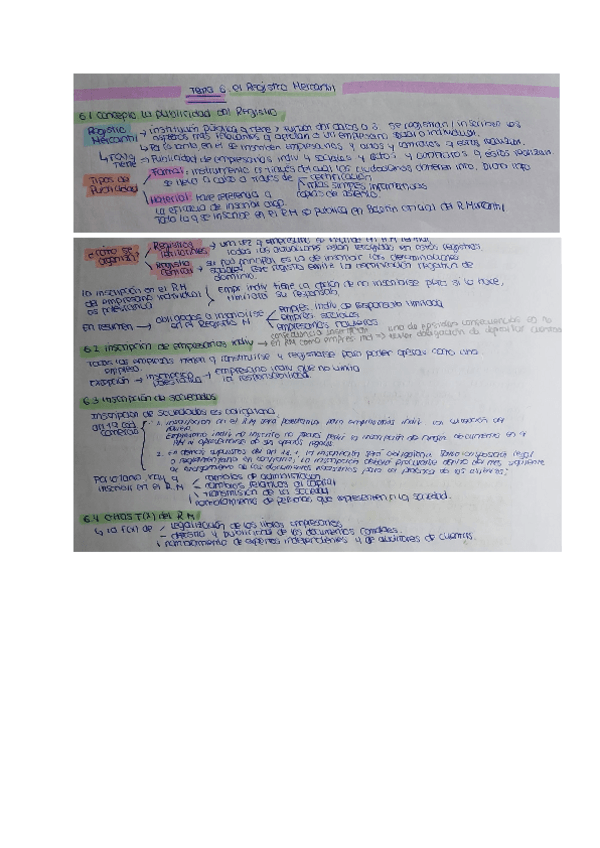 Tema 6: el Registro Mercantil
6.1 Concepto la publicidad del Registro
Registro Mercantil → institución pública q tiene x función dar datos a 3: se registran / inscriben los
aspectos más relevantes q afectan a un empresario social o individual.
↳ Por lo tanto en él se inscriben empresarios y actos y contratos q estos realizan.
↳ RM q tiene → Publicidad de empresarios indiv y sociales y actos y contratos q estos realizan.
Tipos de Publicidad
Formal: instrumento a través del cual los ciudadanos obtienen info. Dicha info
se lleva a cabo a través de certificación
notas simples informativas
copias de asiento.
Material: Hace referencia a
la eficacia de inscribir algo.
Todo lo q se inscribe en el RM se publica en Boletín oficial del R. Mercantil
¿Cómo se organiza?
Registros territoriales → una vez q empresario se inscribe en el RM
todas las actuaciones están recogidas en estos registros.
Registro central → su f(x) principal es la de inscribir las denominaciones
sociales. Este registro emite la certificación negativa de
dominio.
La inscripción en el RM
del empresario individual
es potestativa
Empr indiv tiene la opción de no inscribirse pero si lo hace,
limitará su responsab.
En resumen → obligados a inscribirse
en el Registro M
empres. indiv de Responsab limitada
empres. sociales
empresarios navieros
una de posibles consecuencias es no
en RM como empres. ind → tener obligación de depositar cuentas
6.2 inscripción de empresarios indiv
Todas las empresas tienen q constituirse y registrarse para poder operar como una
empresa.
Excepción → inscripción potestativa → empresario indiv que no limita
la responsabilidad.
6.3 inscripción de sociedades
Inscripción de sociedades es obligatoria
art 19 cod. comercio
1. inscripción en el RM será potestativa para empresarios indiv. con excepción del
naviero.
Empresario indiv de inscrito no podrá pedir la inscripción de ningún documento en el
RM ni aprovecharse de sus efectos legales.
2. En demás supuestos del art 16.1, la inscripción será obligatoria. Salvo disposición legal
o reglamentaria en contrario, la inscripción deberá procurarse dentro del mes siguiente
al otorgamiento de los documentos necesarios para la práctica de los asientos.
Por lo tanto, hay q
inscribir en el RM
cambios de administración
cambios relativos al capital
transmisión de la sociedad
nombramiento de personas que representen a la sociedad.
6.4 otras f(x) del RM
↳ la f(x) de
legalización de los libros empresarios
depósito y publicidad de los documentos contables.
nombramiento de expertos independientes y de auditores de cuentas.